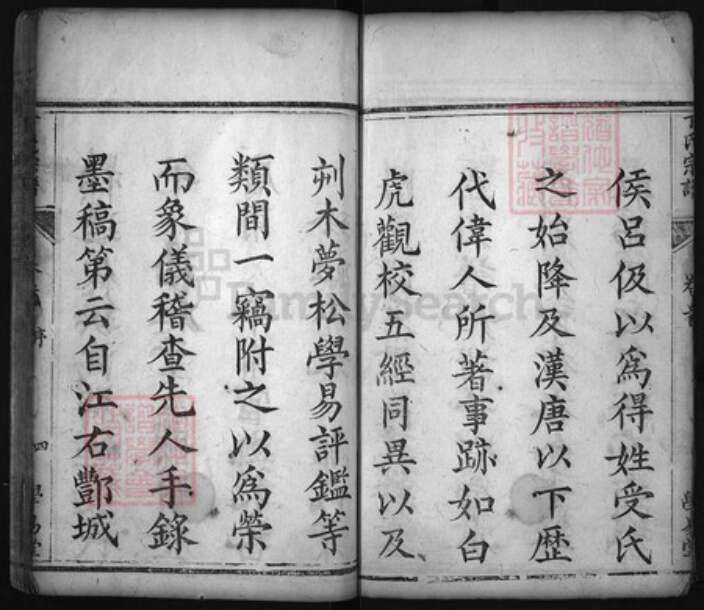 侯呂伋以爲得姓受氏
之始降及漢唐以下歷
代偉人所著事跡如白
虎觀校五經同異以及
刻木夢松學易評鑑等
類間一竊附之以爲榮
而象儀稽查先人手錄
墨稿第云自江右酆城
丁氏宗譜
卷首
四
FamilySearch